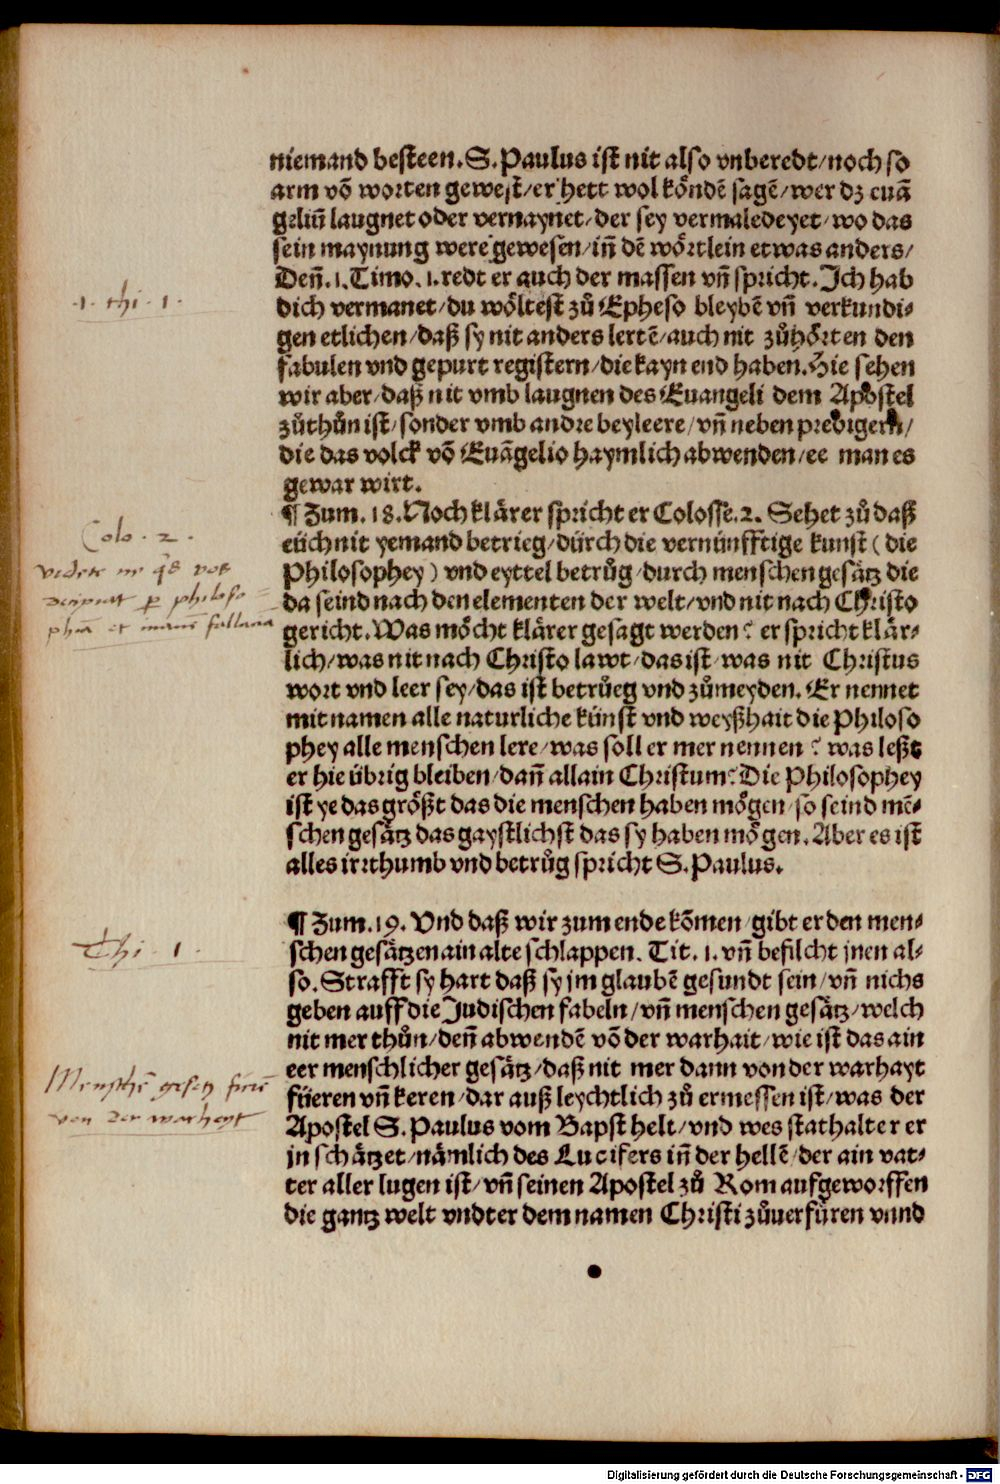 niemand besteen. S. Paulus ist nit also vnberedt/noch so
arm võ worten gewest/er hett wol köndẽ sagẽ/wer dz euã
geliuñ laugnet oder vernaynet/der sey vermaledeyet/wo das
sein maynung were gewesen/iñ dẽ wörtlein etwas anders/
Deñ. 1. Timo. 1. redt er auch der massen vñ spricht. Ich hab
·1· thi · 1 ·
dich vermanet/du wöltest zů Epheso bleybẽ vñ verkundi⸗
gen etlichen/daß sy nit anders lertẽ/auch nit zůhörten den
fabulen vnd gepurt registern/die kayn end haben. Hie sehen
wir aber/daß nit vmb laugnen des Euangeli dem Apostel
zůthůn ist/sonder vmb andre beyleere/vñ neben predigern/
die das volck võ Euãgelio haymlich abwenden/ee man es
gewar wirt.
¶ Zum. 18. Noch klärer spricht er Colosse. 2. Sehet zů daß
Colo · 2 ·
eüch nit yemand betrieg/dürch die vernünfftige kunst (die
Philosophey) vnd eyttel betrůg/durch menschen gesätz die
da seind nach den elementen der welt/vnd nit nach Christo
philoso
phiã et fallacia
gericht. Was möcht klärer gesagt werden? er spricht klär⸗
lich/was nit nach Christo lawt/das ist/was nit Christus
wort vnd leer sey/das ist betrůeg vnd zůmeyden. Er nennet
mit namen alle naturliche künst vnd weyßhait die Philoso
phey alle menschen lere/was soll er mer nennen? was leßt
er hie übrig bleiben/dañ allain Christum? Die Philosophey
ist ye das größt das die menschen haben mögen/so seind mẽ⸗
schen gesätz das gaystlichst das sy haben mögen. Aber es ist
alles irrthumb vnd betrůg spricht S. Paulus.
¶ Zum. 19. Vnd daß wir zum ende kõmen/gibt er den men⸗
Thi · 1 ·
schen gesätzen ain alte schlappen. Tit. 1. vñ befilcht jnen al⸗
so. Strafft sy hart daß sy jm glaubẽ gesundt sein/vñ nichs
geben auff die Judischen fabeln/vñ menschen gesätz/welch
nit mer thůn/deñ abwendẽ võ der warhait/wie ist das ain
eer menschlicher gesätz/daß nit mer dann von der warhayt
Menschẽ gesetz fürẽ
von der warheyt
füeren vñ keren/dar auß leychtlich zů ermessen ist/was der
Apostel S. Paulus vom Bapst helt/vnd wes stathalter er
jn schätzet/nämlich des Lucifers iñ der hellẽ/der ain vat⸗
ter aller lugen ist/vñ seinen Apostel zů Rom aufgeworffen
die gantz welt vndter dem namen Christi zůuerfüren vnnd
Digitalisierung gefördert durch die Deutsche Forschungsgemeinschaft - DFG